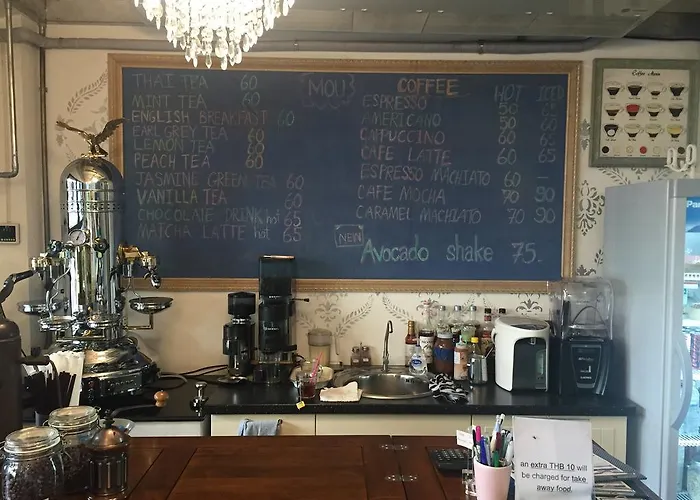 THAI TEA 60
MINT TEA 60
ENGLISH BREAKFAST 60
EARL GREY TEA 60
LEMON TEA 60
PEACH TEA 60
JASMINE GREEN TEA 60
VANILLA TEA 60
CHOCOLATE DRINK hot 65
MATCHA LATTE hot 65
MOU
COFFEE HOT ICED
ESPRESSO 50
AMERICANO 50 60
CAPPUCCINO 60 62
CAFE LATTE 60 65
ESPRESSO MACHIATO 60 -
CAFE MOCHA 70 90
CARAMEL MACHIATO 70 90
NEW
Avocado shake 75.
Coffee Menu
an extra THB 10 will
be charged for take
away food.